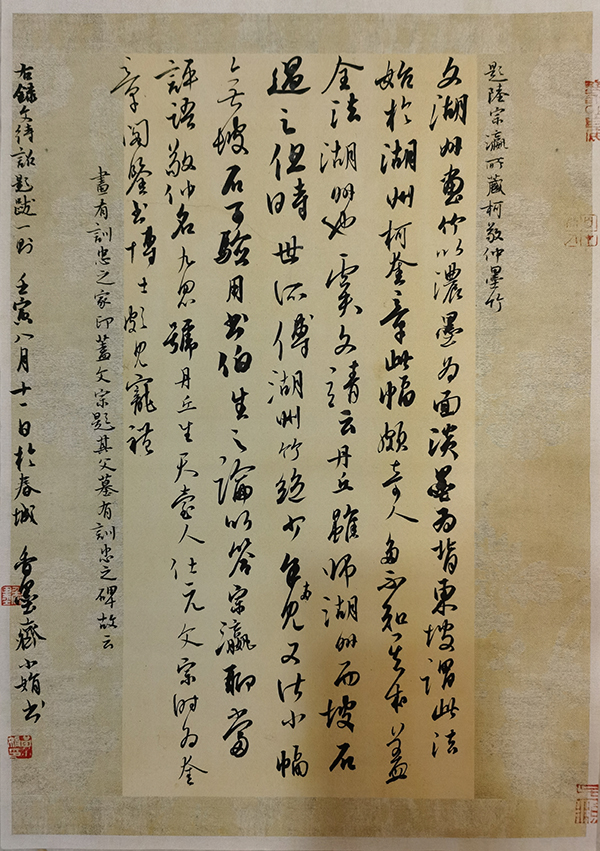 题陸宗瀛所藏柯敬仲墨竹
文湖州画竹以濃墨为面淡墨为背東坡謂此法
始於湖州柯奎章此幅頗奇人多不知其本盖
全法湖州也虞文靖云丹丘雖师湖州而坡石
過之但時世所傅湖州竹絶少未見又法小幅
坡石可驗用书伯生之論以答宗瀛聊當
評语敬仲名九思號丹丘生天台人仕元文宗时为奎
章阁鑒书博士頗見寵禮
畫有訓忠之家印蓋文宗題其父墓有訓忠之碑故云
右録文待詔題跋一則 壬寅八月十一日於春城 香墨齋小娟书